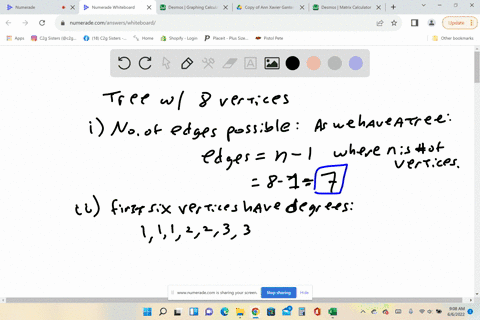 Numerade
Numerade Whiteboard
Desmos | Graphing Calculat
Copy of Ann Xavier Gantert
Desmos | Matrix Calculator
numerade.com/answers/whiteboard/
Update
Apps
Music
C2g Sisters (@c2g...
(18) C2g Sisters -...
Home
Shopify - Login
Pistol Pete
Other bookmarks
Tree w/ 8 vertices
i) No. of edges possible: As we have a tree:
edges = n - 1 where n is # of vertices.
= 8 - 1 = 7
ii) first six vertices have degrees:
1, 1, 1, 2, 2, 3, 3
www.numerade.com is sharing your screen.
Stop sharing
Hide
9:08 AM
6/6/2022